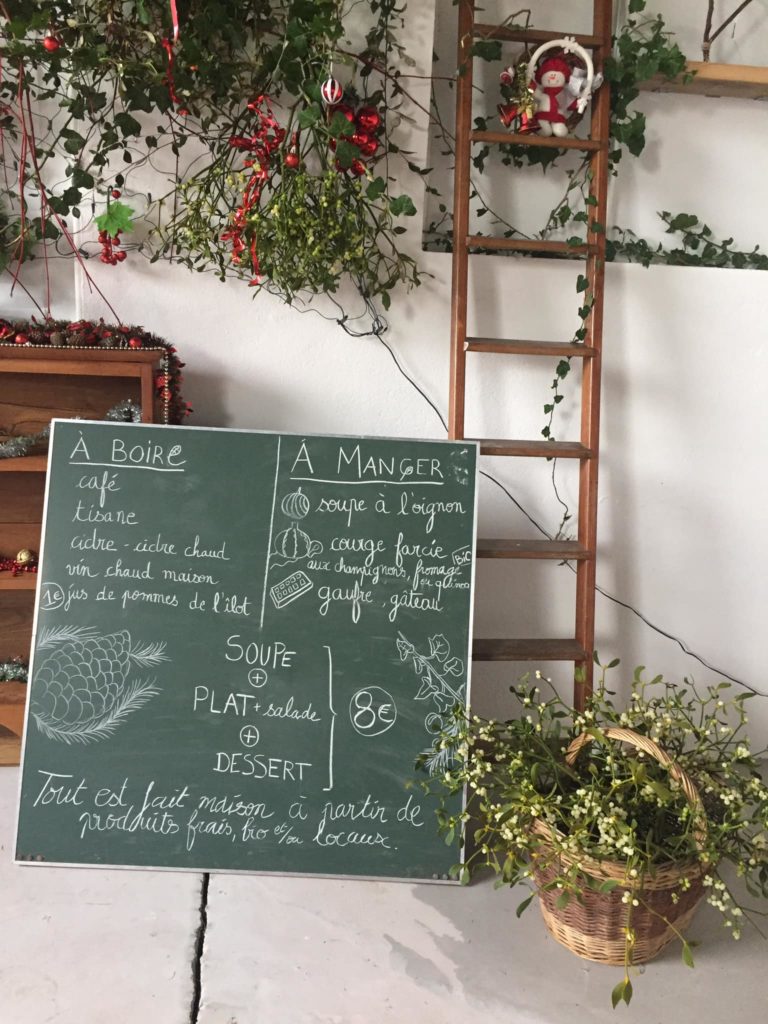 À BOIRE
café
tisane
cidre - cidre chaud
vin chaud maison
1€ jus de pommes de l'îlot
Á MANGER
soupe à l'oignon
courge farcie BIO
aux champignons, fromage
ou quinoa
gaufre, gâteau
SOUPE
+
PLAT + salade
+
DESSERT
8€
Tout est fait maison à partir de
produits frais, bio et/ou locaux.